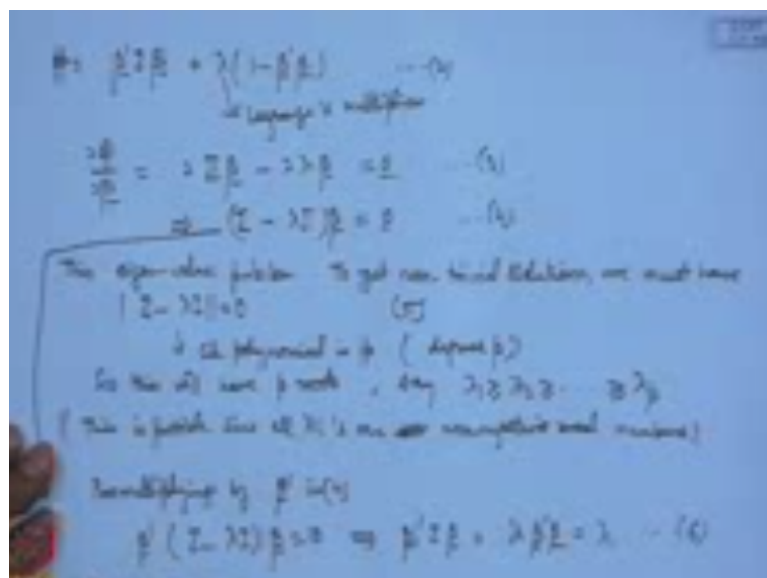 β'Σβ + λ(1-β'β)
Lagrange's multiplier
= 2Σβ - 2λβ = 0
(Σ - λI)β = 0
This eigen-value problem To get non trivial solutions, we must have
|Σ - λI| = 0 (5)
polynomial in (degree p)
So this will have p roots, say λ₁ ≥ λ₂ ≥ ≥ λp
This is possible since all λi's are nonnegative real numbers
Premultiplying by β' in (4)
β'(Σ - λI)β = 0 ⇒ β'Σβ = λβ'β = λ -- (6)